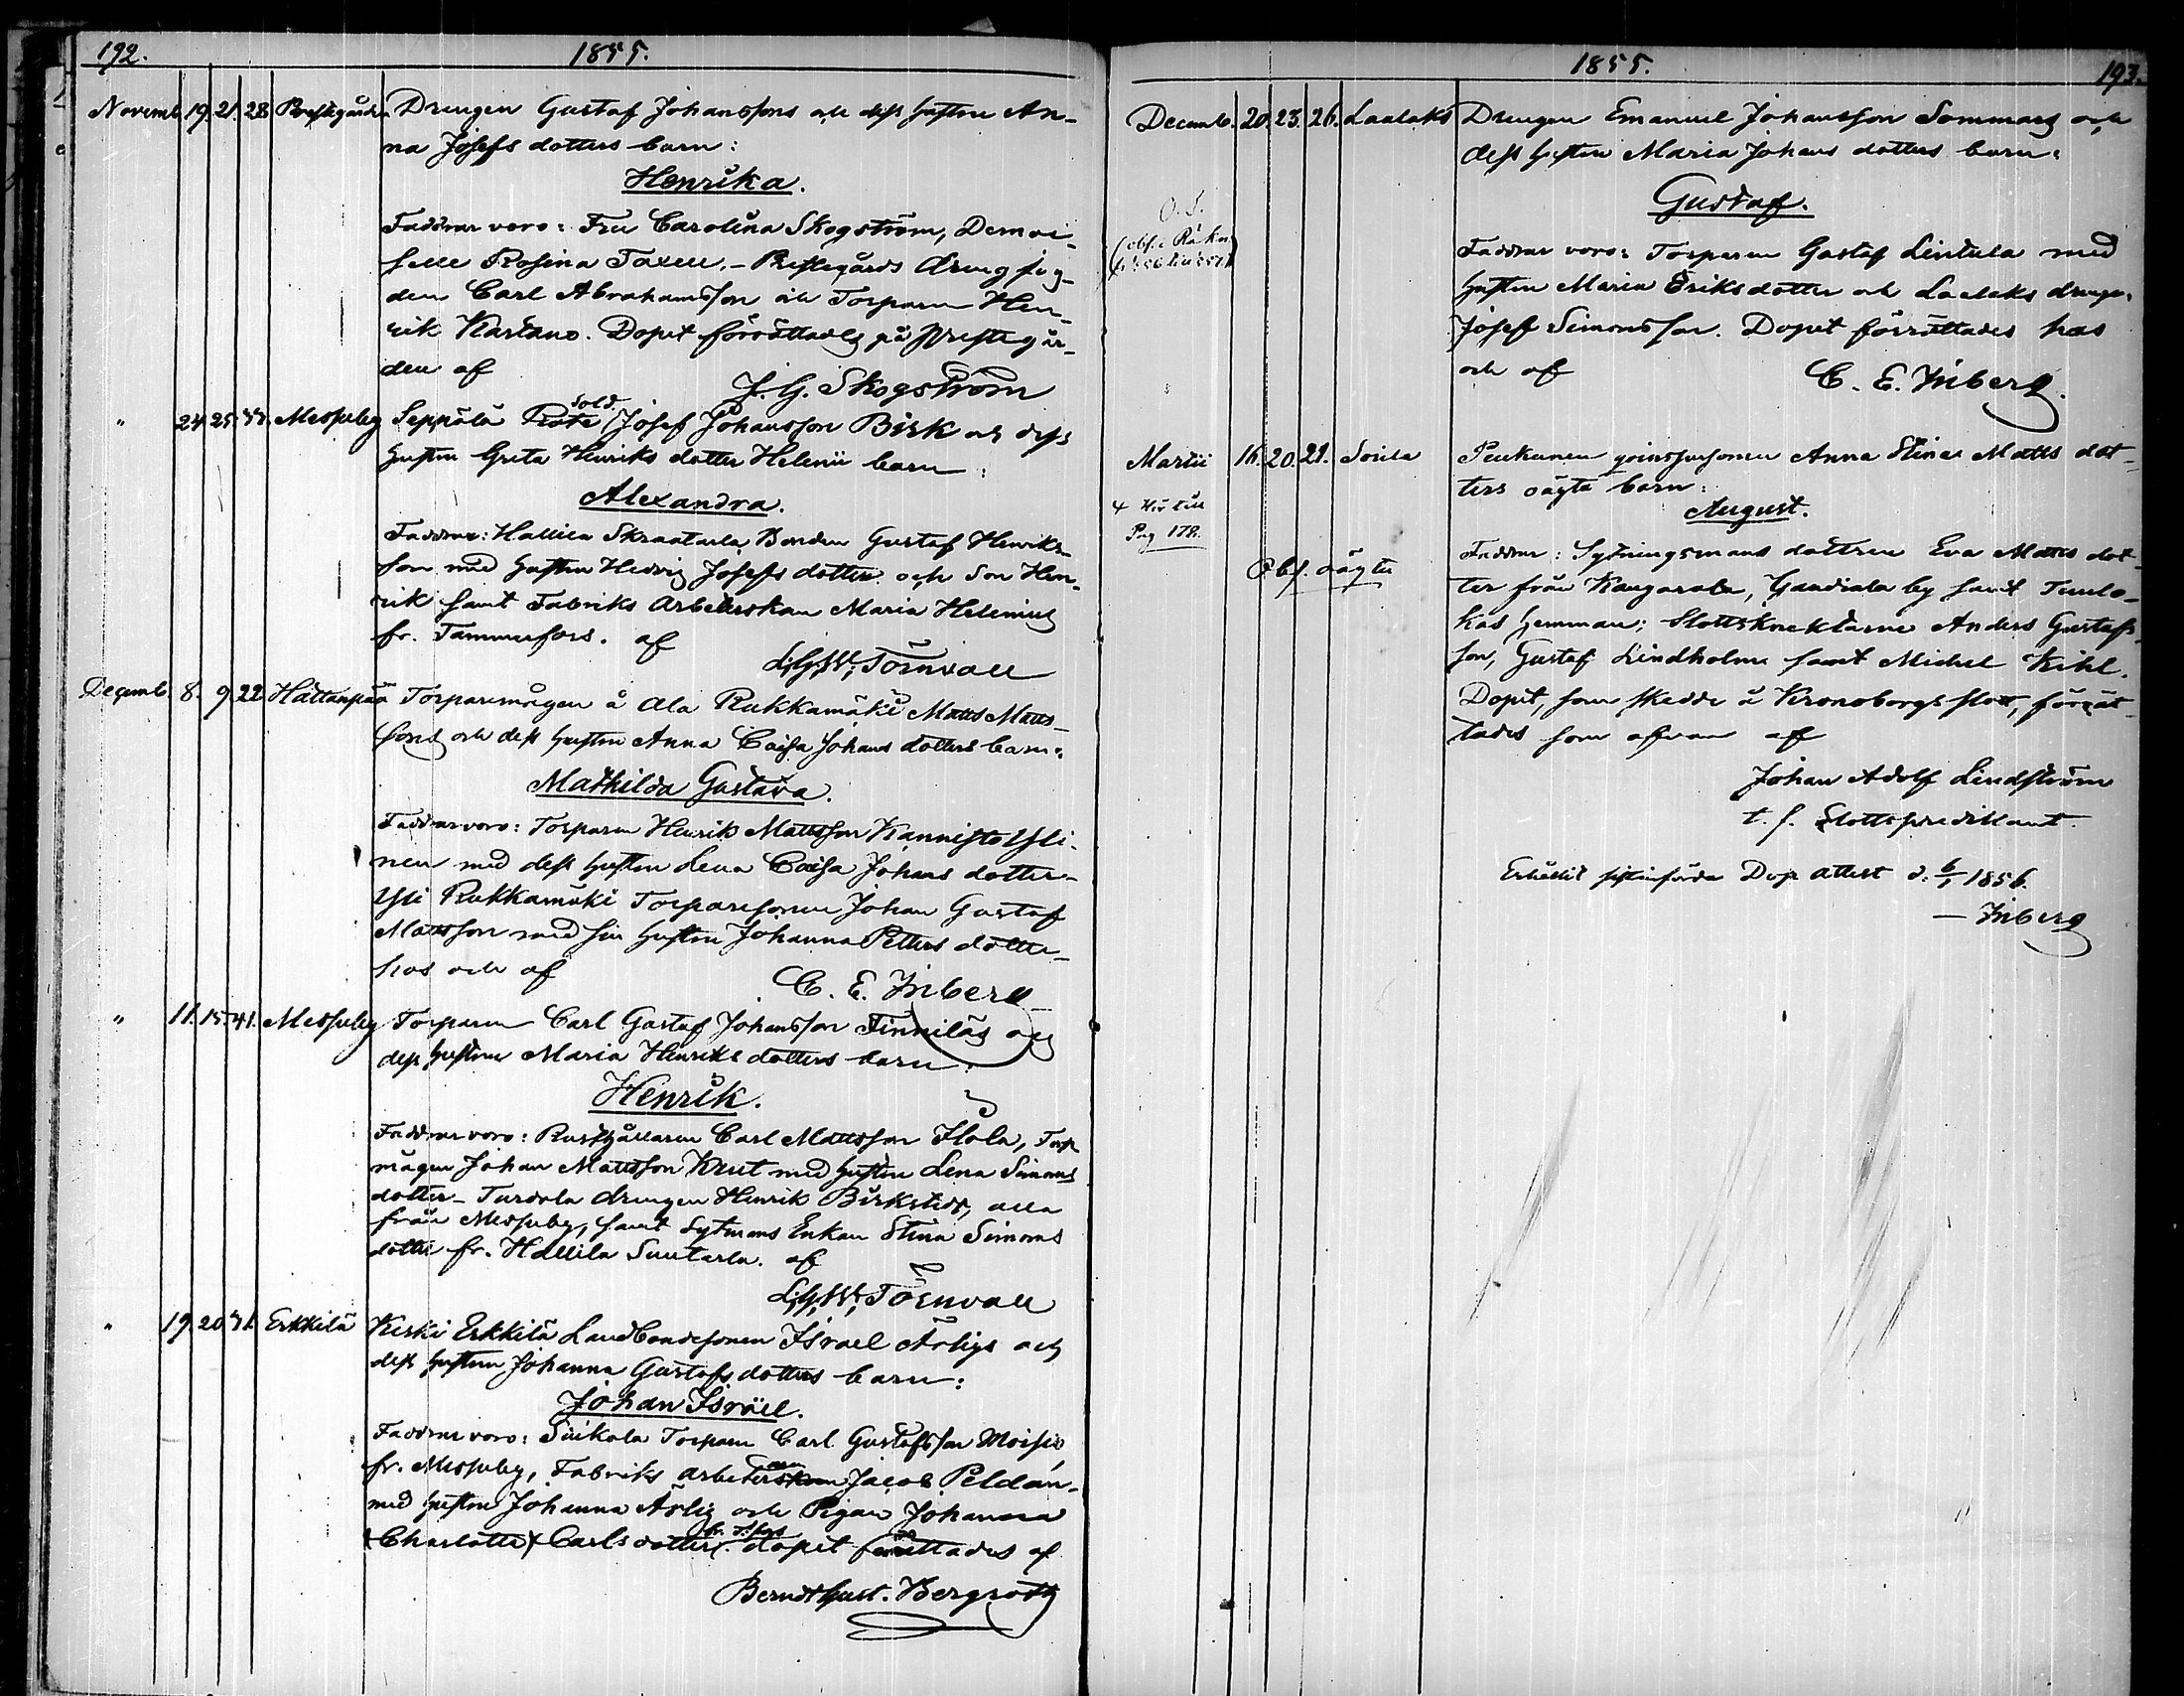 192.
1855.
Novemb. 19. 21. 28. Prestegården Drengen Gustaf Johanssons och dess hustru An-
na Josefs dotters barn:
Henrika.
Faddrar voro: Fru Carolina Skogström, Demoi-
selle Rosina Taxell. - Prestegårds drengfog-
den Carl Abrahamsson och Torparen Hen-
rik Kartano. Dopet förrättades på Prestegår-
den af
J. G. Skogström
" 24. 25. Messuby Seppälä Rote Sold. Josef Johansson Birk och dess
hustru Greta Henriks dotter Helenii barn:
Alexandra.
Faddrar: Hallila Skraatarla Bonden Gustaf Henriks-
son med hustrun Hedvig Josefs dotter och Son Hen-
rik samt Fabriks Arbeterskan Maria Helenius
fr. Tammerfors. af
Törnvall
Decemb. 8. 9. 22. Hattanpää Torparemågen å Ala Rukkamäki Matts Matts-
sons och dess hustru Anna Caisa Johans dotters barn:
Mathilda Gustava.
Faddrar voro: Torparen Henrik Mattsson Kannisto Yli-
nen med dess hustru Lena Caisa Johans dotter-
Yli Rukkamäki Torparesonen Johan Gustaf
Mattsson med sin hustru Johanna Petters dotter-
hos och af
C. E. Inberg
" 11. 15. 41. Messuby Torparen Carl Gustaf Johansson Finnilä och
dess hustrus Maria Henriks dotters barn.
Henrik.
Faddrar voro: Rusthållaren Carl Mattsson Ilola, Torp.
mågen Johan Mattsson Knut med hustru Lena Simons
dotter - Turvola drengen Henrik Birkstedt, alla
från Messuby, samt Sytmans Enkan Stina Simons
dotter fr. Hallila Suutarla. af
Törnvall
" 19. 20. 31. Erkkilä Keski Erkkilä Landbondesonen Israel Ärligs och
dess hustru Johanna Gustafs dotters barn:
Johan Israel.
Faddrar voro: Siukola Torparen Carl Gustafsson Moisio
fr. Messuby, Fabriks arbetaren Jacob Peldán
med hustru Johanna Ärlig och Pigan Johanna
(Charlotta) Carlsdotter fr. T:fors. dopet förrättades af
Berndt Gust. Bergroth
1855.
193.
Decemb. 20. 23. 26. Laalaks Drengen Emanuel Johansson Sommars och
dess hustru Maria Johans dotters barn:
Gustaf.
Faddrar voro: Torparen Gustaf Lintula med
hustru Maria Eriksdotter och Laalaks drengen
Josef Simonsson. Dopet förrättades hos
och af
C. E. Inberg.
Martii 16. 20. 21. Sorila Peukunen qvinspersonen Anna Stina Matts dot-
ters oägta barn:
Hör till
Pag 178.
August.
Obs. oägta
Faddrar: Sytningsmans dottren Eva Matts dot-
ter från Kangasala, Gandiala by samt Tuulo-
kas hemman; Slottsknektarne Anders Gustafs-
son, Gustaf Lindholm samt Michel Kihl.
Dopet, som skedde å Kronoborgs slott, förrät-
tades som ofvan af
Johan Adolf Lindström
t. f. Slottspredikant.
Erhållit sistinförda Dop attest d. 6/1 1856.
- Inberg